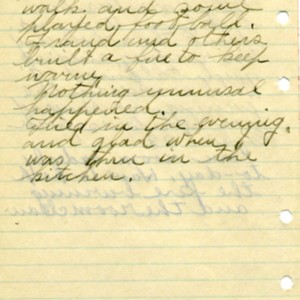 walk and some
played football.
I and others
built a fire to keep
warm
Nothing unusual
happened
in the evening.
and glad when I
was thru in the
kitchen.